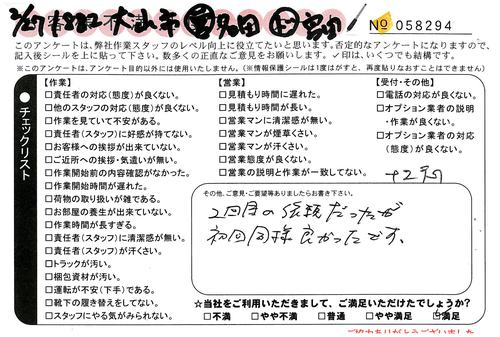 No 058294
このアンケートは、弊社作業スタッフのレベル向上に役立てたいと思います。否定的なアンケートになりますので、
記入後シールを上に貼って下さい。数多くの正直なご意見をお願いします。✓印は、いくつでも結構です。
※このアンケートは、アンケート目的以外には使用いたしません。(※情報保護シールは1度はがすと、再度貼りなおすことはできません)
●チェックリスト
【作業】
□責任者の対応(態度)が良くない。
□他のスタッフの対応(態度)が良くない。
□作業を見ていて不安がある。
□責任者(スタッフ)に好感が持てない。
□お客様への挨拶が出来ていない。
□ご近所への挨拶・気遣いが無い。
□作業開始前の内容確認がなかった。
□作業開始時間が遅れた。
□荷物の取り扱いが雑である。
□お部屋の養生が出来ていない。
□作業時間が長すぎる。
□責任者(スタッフ)に清潔感が無い。
□責任者(スタッフ)が汗くさい。
□トラックが汚い。
□梱包資材が汚い。
□運転が不安(下手)である。
□靴下の履き替えをしてない。
□スタッフにやる気がみられない。
【営業】
□見積もり時間に遅れた。
□見積もり時間が長い。
□営業マンに清潔感が無い。
□営業マンが煙草くさい。
□営業マンが汗くさい。
□営業態度が良くない。
□営業の説明と作業が一致してない。
【受付・その他】
□電話の対応が良くない。
□オプション業者の説明
・作業が良くない。
□オプション業者の対応
(態度)が良くない。
その他、ご意見・ご要望等ありましたらお書き下さい。
2回目の依頼だったが
初回同様良かったです。
☆当社をご利用いただきまして、ご満足いただけたでしょうか?
□不満 □やや不満 □普通 □やや満足 ☑満足
ご協力ありがとうございました